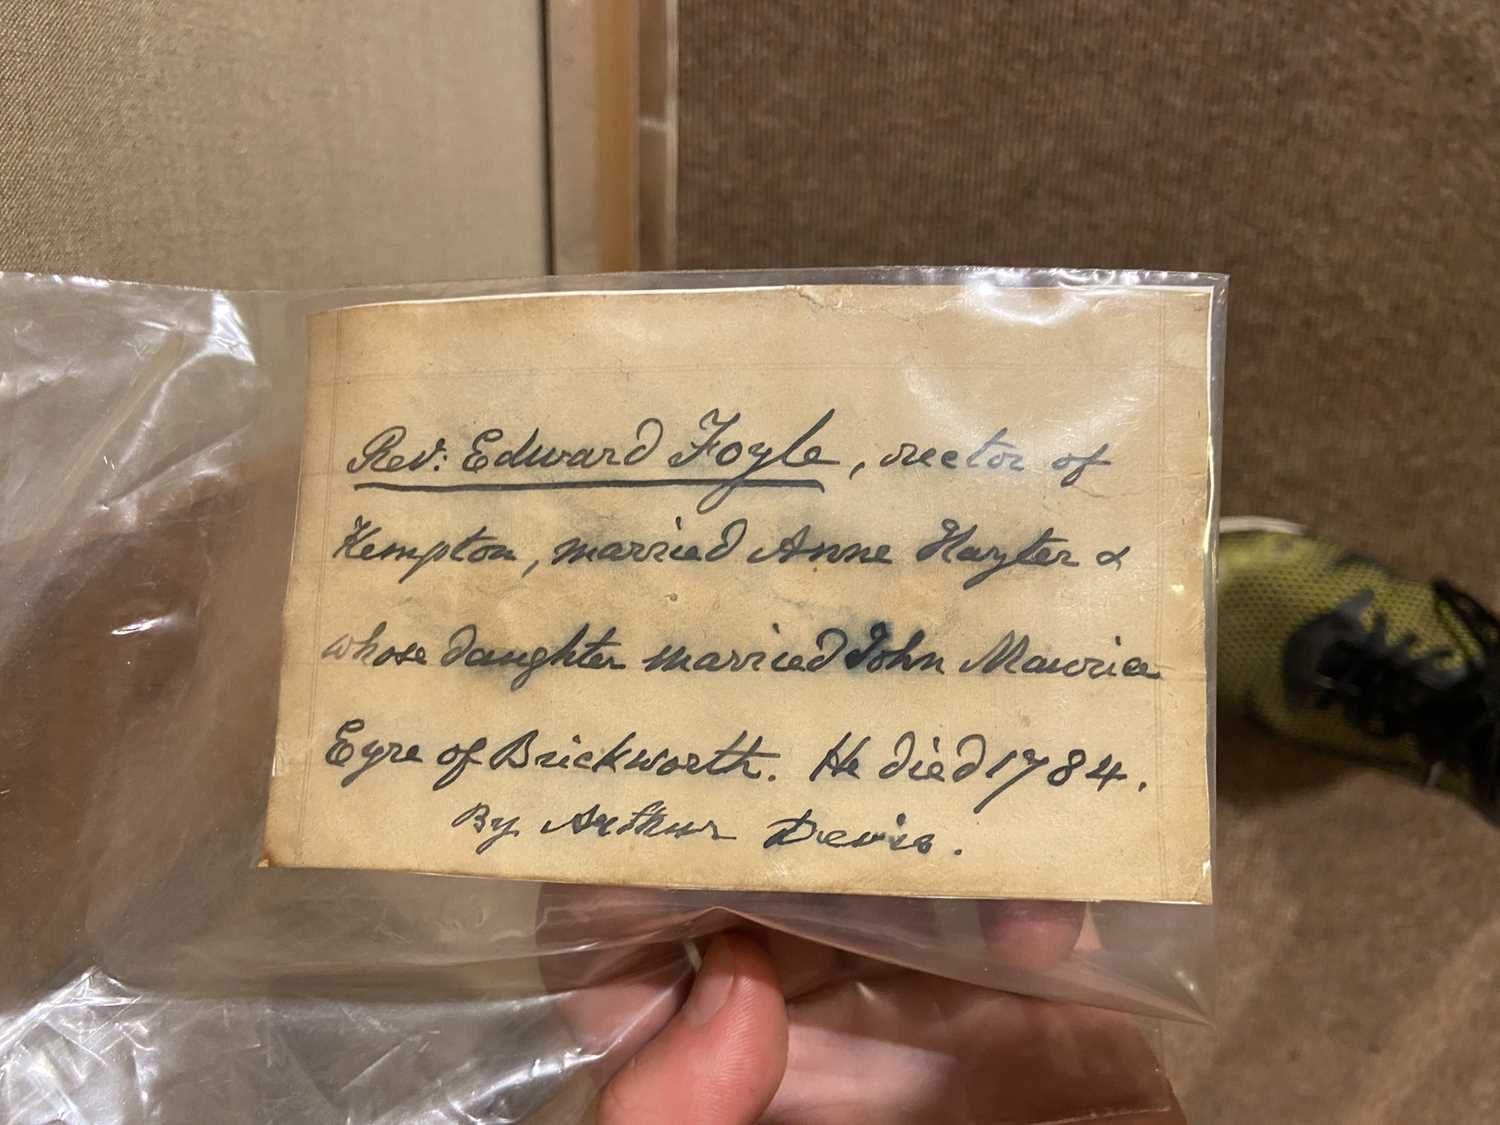 Rev: Edward Foyle, rector of
Kempton, married Anne Hayter &
whose daughter married John Maurice
Eyre of Brickworth. He died 1784.
By Arthur Devis.